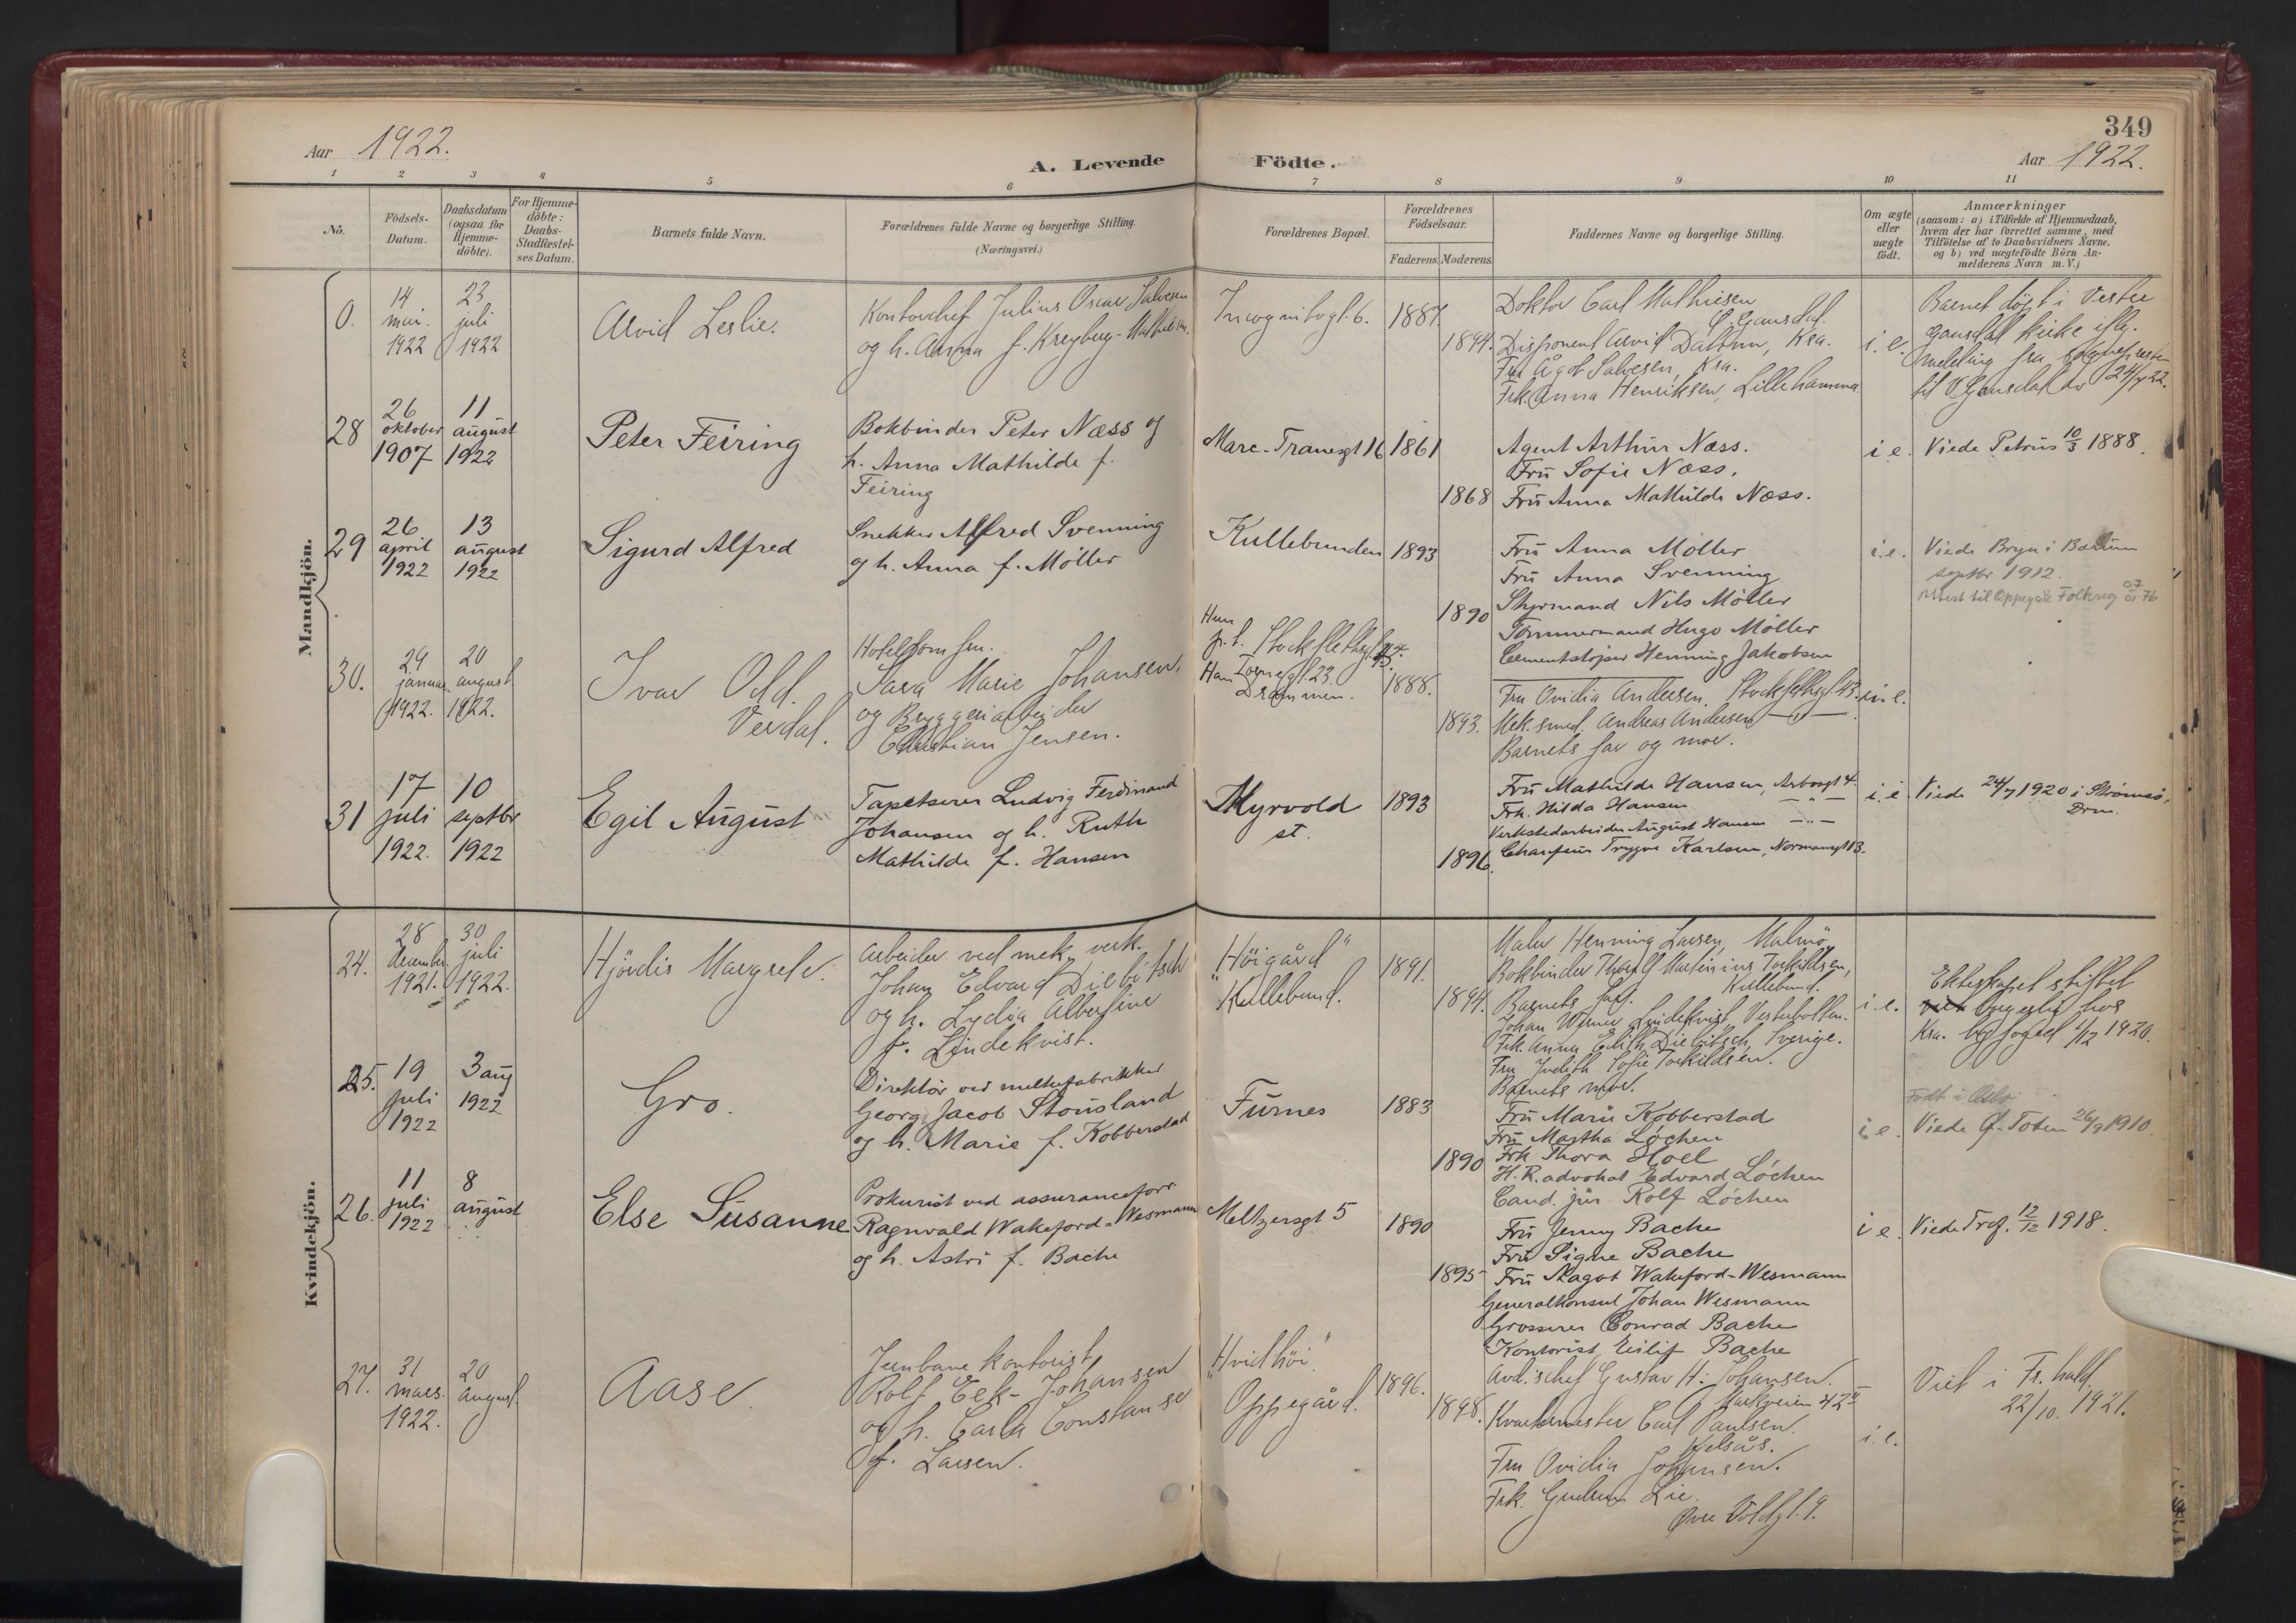 349
Aar 1922.
A. Levende Födte.
Aar 1922.
1 2 3 4 5 6 7 8 9 10 11
Nö.
Födsels-
Datum.
Daabsdatum
(ogsaa for
Hjemme-
döbte).
For Hjemme-
döbte:
Daabs-
Stadfæstel-
ses Datum.
Barnets fulde Navn.
Forældrenes fulde Navne og borgerlige Stilling.
(Næringsvei.)
Forældrenes Bopæl.
Forældrenes
Födselsaar.
Faderens. Moderens.
Faddernes Navne og borgerlige Stilling.
Om ægte
eller
uægte
födt.
Anmærkninger
(saasom: a) i Tilfælde af Hjemmedaab,
hvem der har forrettet samme, med
Tilföielse af to Daabsvidners Navne,
og b) ved uægtefödte Börn An-
melderens Navn m. V.)
Mandkjön.
0.
14
mai.
1922
23
juli
1922
Arvid Leslie.
Kontorchef Julius Oscar Salvesen
og h. Anna f. Kreyberg-Mathiesen.
Incognitogt. 6.
1887.
1894.
Doktor Carl Mathiesen
Ø. Gausdal.
Disponent Arvid Dahm, Kra.
Fru Ågot Salvesen, Kra.
Frk. Anna Henriksen, Lillehammer
i. e.
Barnet døpt i Vestre
Gausdal kirke iflg.
melding fra sognepresten
til V. Gausdal av 24/7 22.
28
26
oktober
1907
11
august
1922
Peter Feiring
Bokbinder Peter Næss og
h. Anna Mathilde f.
Feiring
Marc. Tranesgt 16
1861
1868
Agent Arthur Næss.
Fru Sofie Næss.
Fru Anna Mathilde Næss.
i e.
Viede Petrus 10/3 1888.
29
26
april
1922
13
august
1922
Sigurd Alfred
Snekker Alfred Svenning
og h. Anna f. Møller
Kullebunden
1893
1890
Fru Anna Møller
Fru Anna Svenning
Styrmand Nils Møller
Tømmermand Hugo Møller
Cementstøper Henning Jakobsen
i. e.
Viede Bryn i Bærum
septbr 1912.
Attest til Oppegård Folkereg
30.
29
januar
1922.
20
august
1922.
Ivar Odd
Verdal.
Hotel
Sara Marie Johansen,
og Bryggeriarbeider
Christian Jensen.
Hun
p. t. Stockflethsgt.
Ham Tornegt. 23.
Drammen.
1888.
1893.
Fru Ovidia Andersen, Stockflethsgt 43.
Mek. smed. Andreas Andersen — " —
Barnets far og mor.
31
17
juli
1922.
10
septbr
1922
Egil August
Tapetserer Ludvig Ferdinand
Johansen og h. Ruth
Mathilde f. Hansen
Myrvold
st.
1893
1896.
Fru Mathilde Hansen, Arbosgt 4.
Frk. Hilda Hansen — " —
Verkstedarbeider August Hansen — " —
Chauffeur Trygve Karlsen, Normannsgt 13.
i. e
Viede 24/7 1920 i Strømsø,
Drm.
Kvindekjön.
24.
28
december
1921.
30
juli
1922.
Hjördis Margrete.
Arbeider ved mek. verk.
Johan Edvard Diebitsch
og h. Lydia Albertine
f. Lindekvist.
"Höigård"
Kullebund.
1891.
1894.
Maler Henning Larsen, Malmö,
Bokbinder Thoralf Martinius Torkildsen,
Kullebund.
Barnets far.
Johan Verner Lindekvist, Vesterbotten.
Frk. Anna Edith Diebitsch, Sverige.
Fru Judith Sofie Torkildsen.
Barnets mor.
i. e.
Ekteskapet stiftet
borgerlig hos
Kra. byfoged 1/12 1920.
25.
19
juli
1922
3 aug
1922
Gro.
Direktør ved melkefabrikker
Georg Jacob Stousland
og h. Marie f. Kobberstad
Furnes
1883
1890
Fru Marie Kobberstad
Fru Martha Løchen
Frk Thora Hoel
H. R. advokat Edvard Løchen
Cand. jur Rolf Løchen
i. e.
Født i Oslo
Viede Ø. Toten 26/9 1910.
26.
11
juli
1922
8
august
Else Susanne
Prokurist ved assuranceforr
Ragnvald Wakeford-Wesmann
og h. Astri f. Bache
Meltzersgt 5
1890
1895
Fru Jenny Bache
Fru Signe Bache
Fru Magot Wakeford-Wesmann
Generalkonsul Johan Wesmann
Grosserer Conrad Bache
Kontorist Eilif Bache
i e.
Viede Tref. 12/12 1918.
27.
31
mars.
1922.
20
august.
Aase
Jernbanekontorist
Rolf Eek-Johansen
og h. Carla Constanse
f. Larsen.
"Hvidhöi"
Oppegård.
1896.
1898.
Avd. schef Gustav H. Johansen.
Markveien 42
Kvartermester Carl Paulsen.
Kjelsås.
Fru Ovidia Johansen.
Frk. Gudrun Lie.
Øvre Voldgt. 9.
i. e.
Viet i Fr. hald
22/10. 1921.